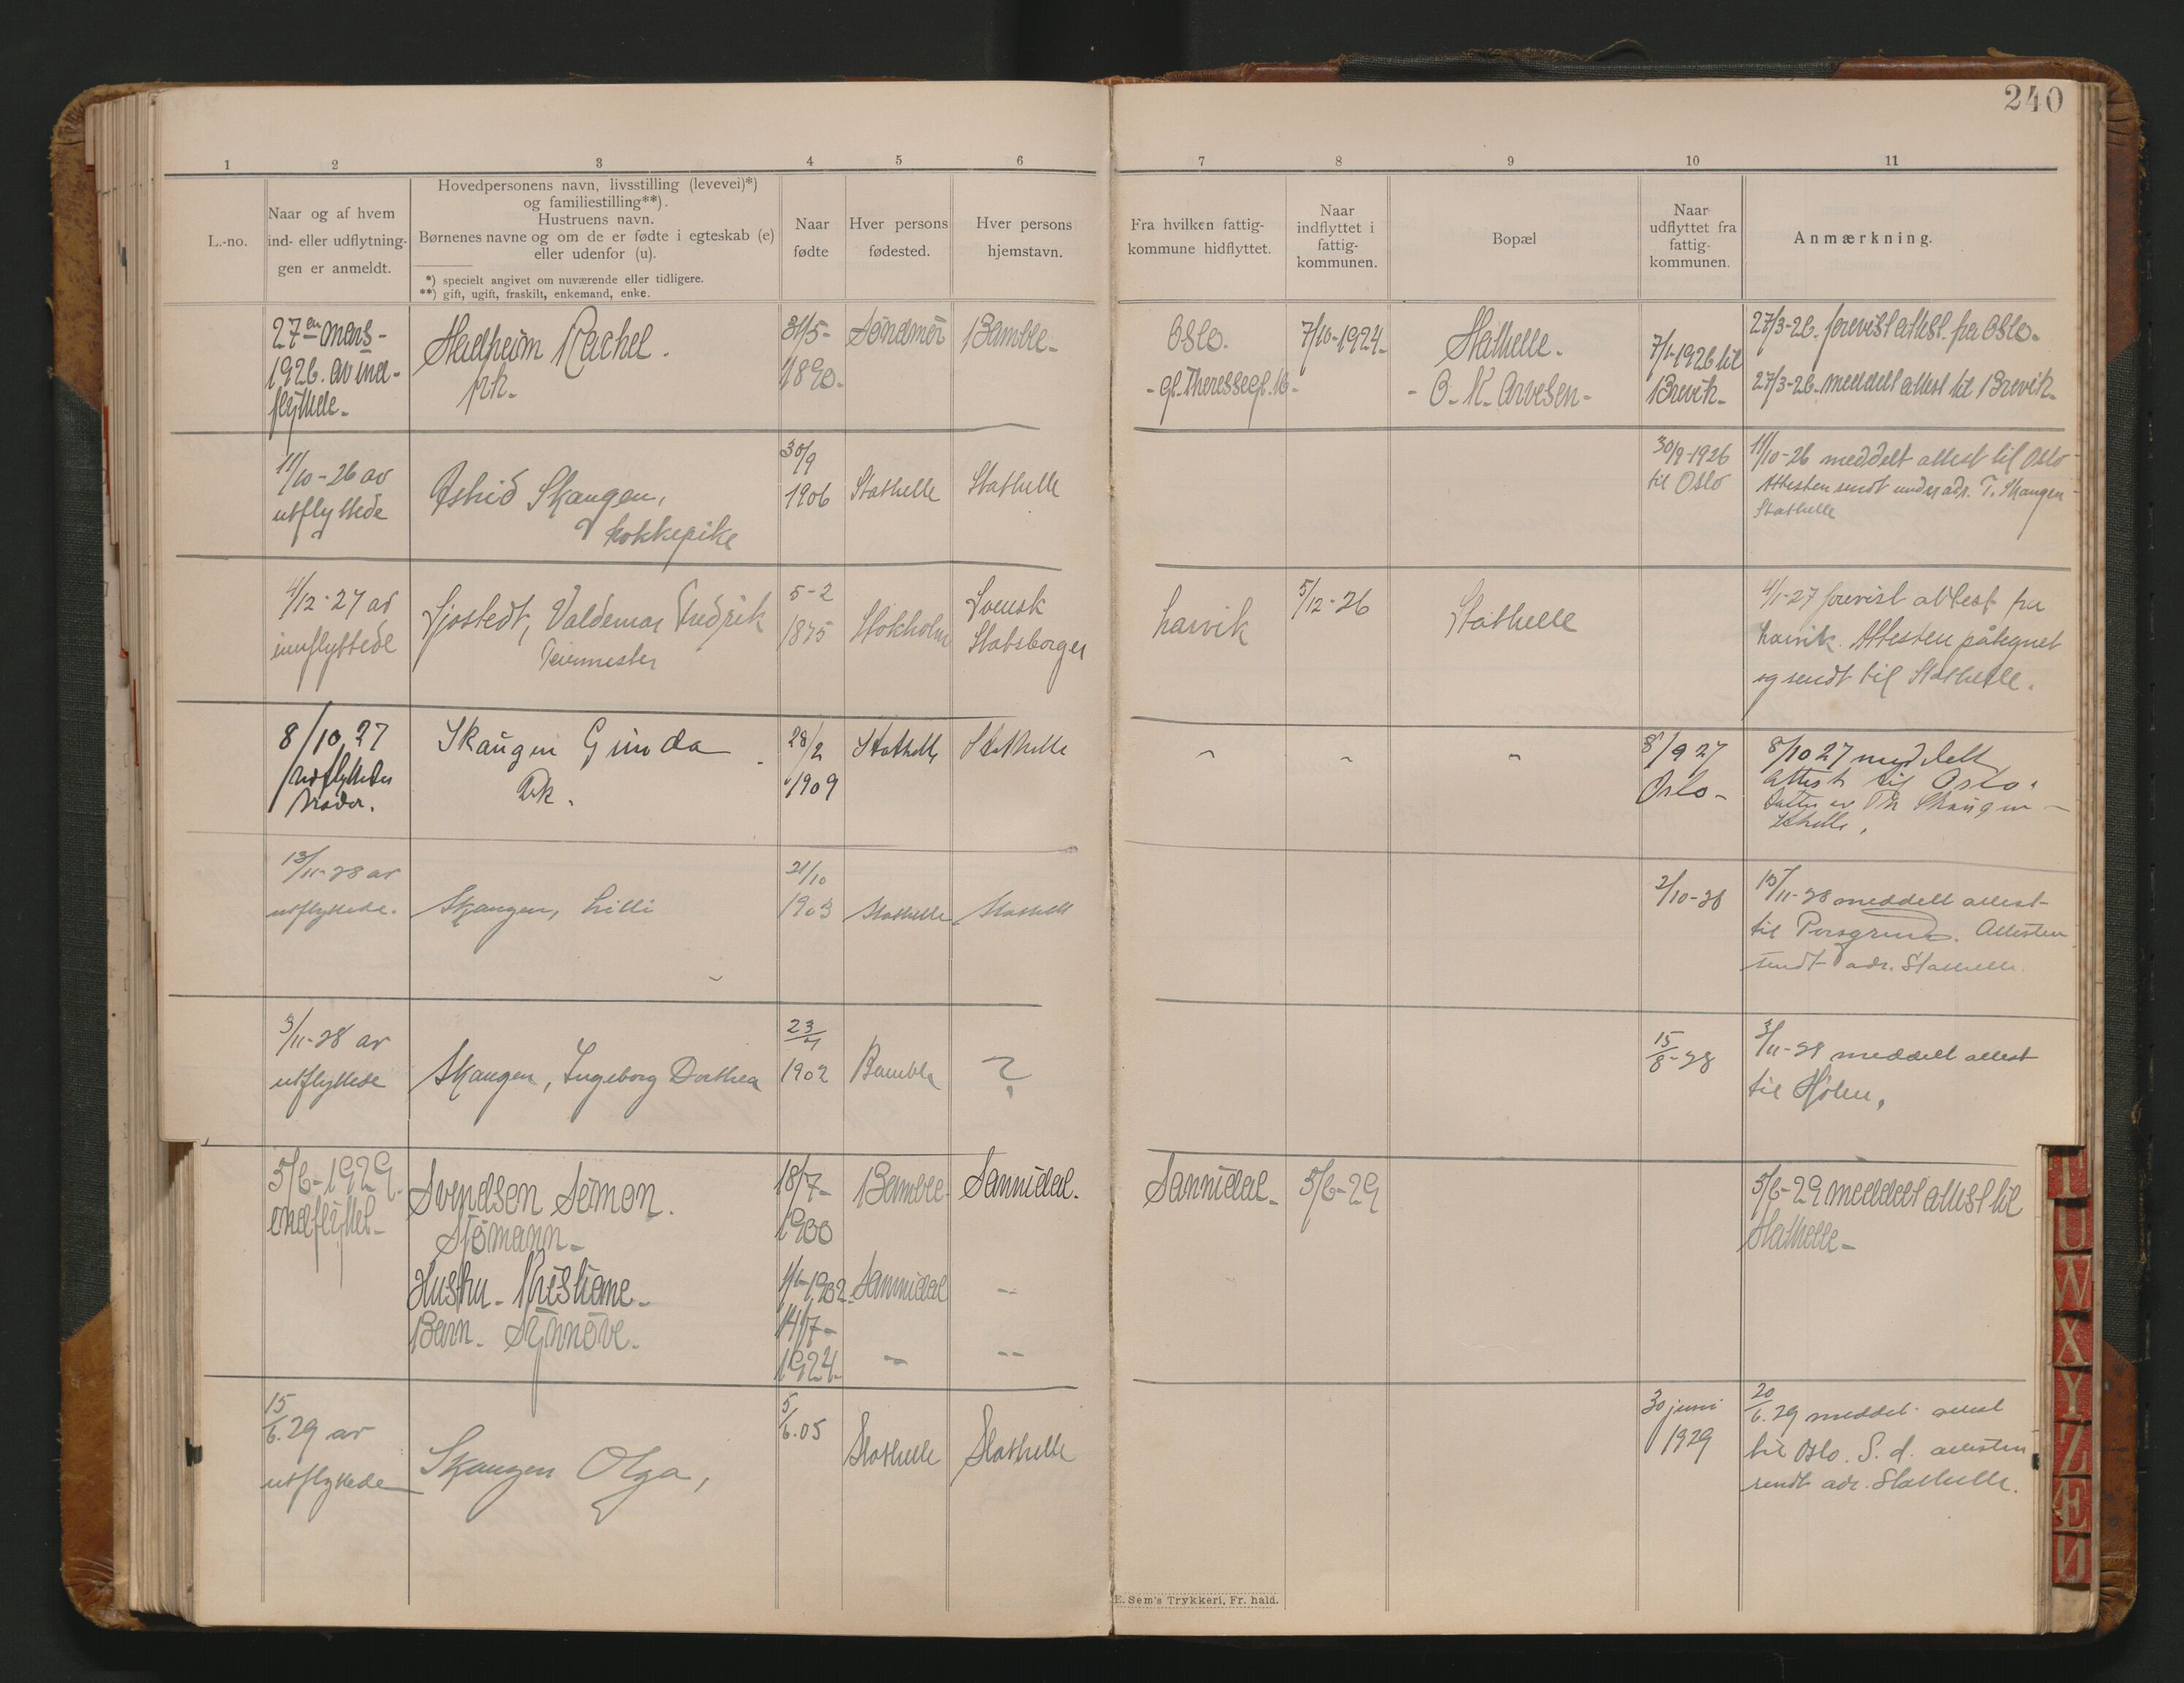 240
1 2 3 4 5 6 7 8 9 10 11
L.-no.
Naar og af hvem
ind- eller udflytnin-
gen er anmeldt.
Hovedpersonens navn, livsstilling (levevei)*)
og familiestilling**).
Hustruens navn.
Børnenes navne og om de er fødte i egteskab (e)
eller udenfor (u).
*) specielt angivet om nuværende eller tidligere.
**) gift, ugift, fraskilt, enkemand, enke.
Naar
fødte
Hver persons
fødested.
Hver persons
hjemstavn.
Fra hvilken fattig-
kommune hidflyttet.
Naar
indflyttet i
fattig-
kommunen.
Bopæl
Naar
udflyttet fra
fattig-
kommunen.
Anmærkning.
27en mars-
1926. av ind-
flyttede-
Stadheim Rachel.
pk-
31/5-
1890-
Søndmør
Bamble-
Oslo.
7/10-1924-
Stathelle.
- O. K. Arvesen-
7/1-1926 til
Brevik-
27/3-26. forevist attest. fra Oslo-
27/3-26. meddelt attest til Brevik-
11/10-26 av
utflyttede
Astrid Skaugen,
kokkepike
30/9
1906
Stathelle
Stathelle
30/9-1926
til Oslo
11/10-26 meddelt attest til Oslo
Attesten sendt under adr. T. Skaugen
Stathelle
4/12-27 av
innflyttede
Sjøstedt, Valdemar Fredrik
5-2
1875
Stokholm
Svensk
Statsborger
Larvik
5/12-26
Stathelle
4/1-27 forevist attest fra
Larvik. Attesten påtegnet
og sendt til Stathelle.
8/10 27
Skaugen Gunda
Pk.
28/2
1909
Stathelle
Stathelle
8/9 27
Oslo-
8/10 27 meddelt
attest til Oslo.
Datter av Th Skaugen
13/11-28 av
utflyttede.
Skaugen, Lilli
21/10
1903
Stathelle
Stathell
2/10-28
13/11-28 meddelt attest
til Porsgrund. Attesten
sendt adr. Stathelle.
3/11-28 av
utflyttede
Skaugen, Ingeborg Dorthea
23/4
1902
Bamble
?
15/8-28
3/11-28 meddelt attest
til Hølen,
5/6-1929.
indflyttet-
Svendsen Simon.
Sjømann-
18/7-
1900
Bamble-
Sannidal.
Sannidal-
5/6-29
5/6-29 meddelt attest til
Stathelle-
Hustru- Kristiane-
1/1-1902-
Sannidal
-"-
Barn- Synnøve.
14/7-
1924-
-"-
-"-
15/6.29 av
utflyttede
Skaugen Olga,
5/6.05
Stathelle
Stathelle
30 juni
1929
20/6.29 meddel. attest
til Oslo. S. d. attesten
sendt adr. Stathelle.
T
U
W
X
Y
Z
Æ
E. Sem's Trykkeri, Fr. hald.